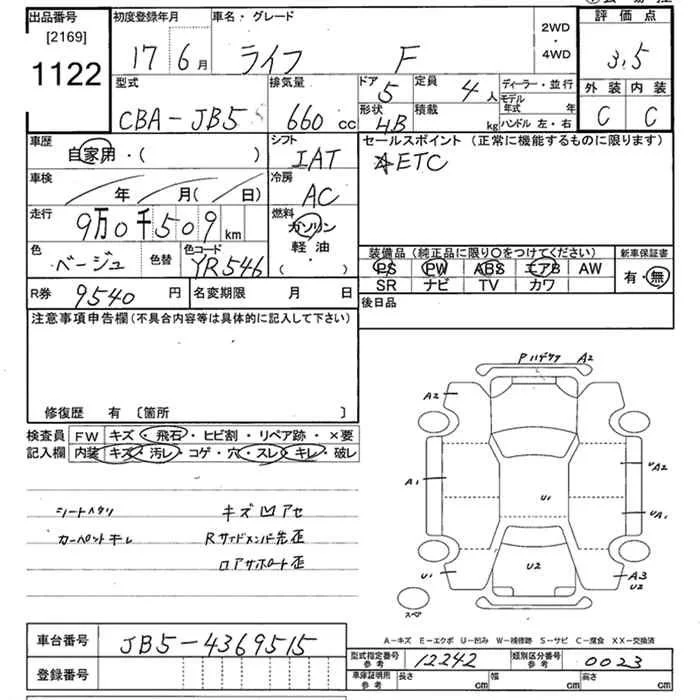 出品番号 [2169] 1122
初度登録年月 17 6月
車名・グレード ライフ F
2WD・4WD
評価点 3.5
外装 C 内装 C
型式 CBA-JB5
排気量 660cc
ドア 5 定員 4人
形状 H.B 積載 kg
ディーラー・並行
モデル年式 年
ハンドル 左・右
車歴 自家用・( )
シフト IAT
セールスポイント (正常に機能するものに限ります)
☆ETC
車検 年 月( / 日)
冷房 AC
走行 9万0千509km
燃料 ガソリン 軽油・( )
色 ベージュ 色替 色コード YR546
装備品 (純正品に限り○をつけてください)
PS PW ABS エアB AW
SR ナビ TV カワ
新車保証書 有・無
R券 9540円 名変期限 月 日
後日品
注意事項申告欄 (不具合内容等は具体的に記入して下さい)
修復歴 有 〔箇所 〕
検査員記入欄 FW キズ・飛石・ヒビ割・リペア跡・×要
内装 キズ・汚レ・コゲ・穴・スレ・キレ・破レ
シートヘタリ キズ凹アセ
カーペット Rサイドメンバー先歪
ロアサポート歪
A2 A2
A1 U1 A2 A1
U1 U2 A3 U2
スペア
A-キズ E-エクボ U-凹み W-補修跡 S-サビ C-腐食 XX-交換済
車台番号 JB5-4369515
登録番号
型式指定番号 参考 12242 類別区分番号 参考 0023
車庫証明用 参考 長さ cm 幅 cm 高さ cm